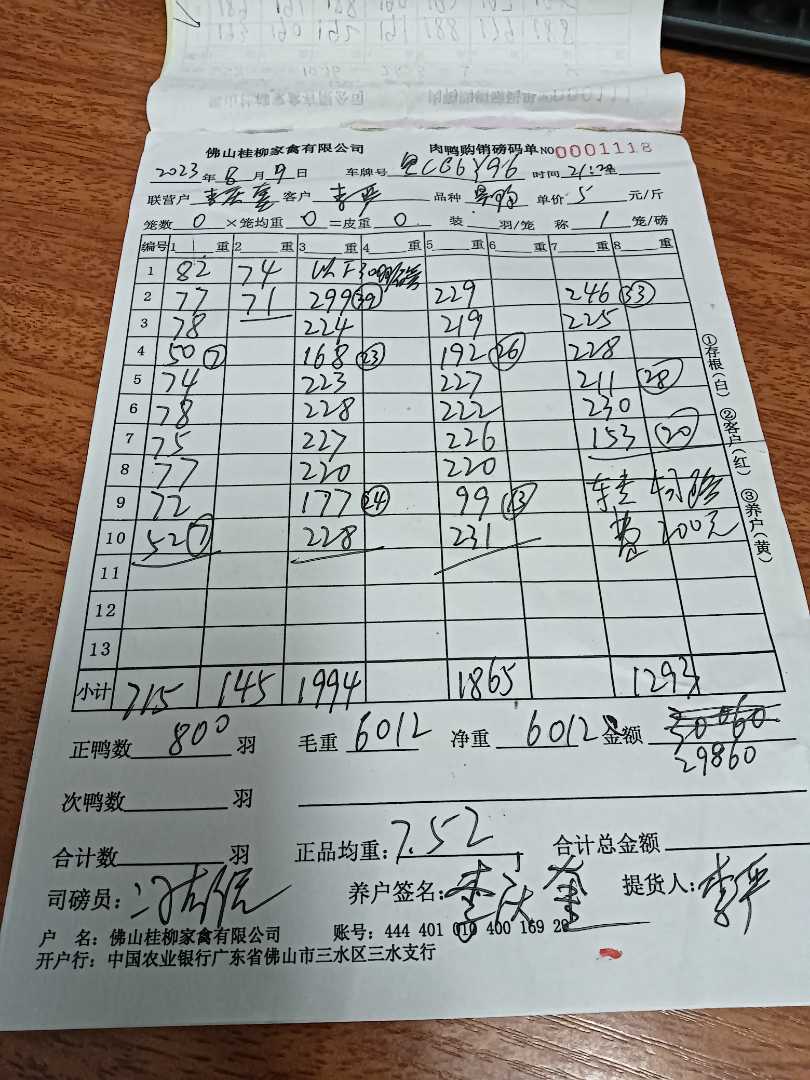 佛山桂柳家禽有限公司 肉鸭购销磅码单 NO 0001118
2023年8月9日 车牌号 时间 21:
联营户 客户 李严 品种 单价 5 元/斤
笼数 0 ×笼均重 0 =皮重 0 装 羽/笼 称 1 笼/磅
编号 1 重 2 重 3 重 4 重 5 重 6 重 7 重 8 重
1 82 74 以下30羽/磅
2 77 71 299 39 229 246 33
3 78 224 219 225
4 50 7 168 23 192 26 228
5 74 223 227 211 28
6 78 228 222 230
7 75 227 226 153 20
8 77 220 220
9 72 177 24 99 13
10 52 7 228 231 费 200元
11
12
13
小计 715 145 1994 1865 1293
正鸭数 800 羽 毛重 6012 净重 6012 金额 30060
29860
次鸭数 羽
合计数 羽 正品均重: 7.52 合计总金额
司磅员: 养户签名: 提货人: 李严
户 名: 佛山桂柳家禽有限公司 账号: 444 401 010 400 169 28
开户行: 中国农业银行广东省佛山市三水区三水支行
①存根(白) ②客户(红) ③养户(黄)